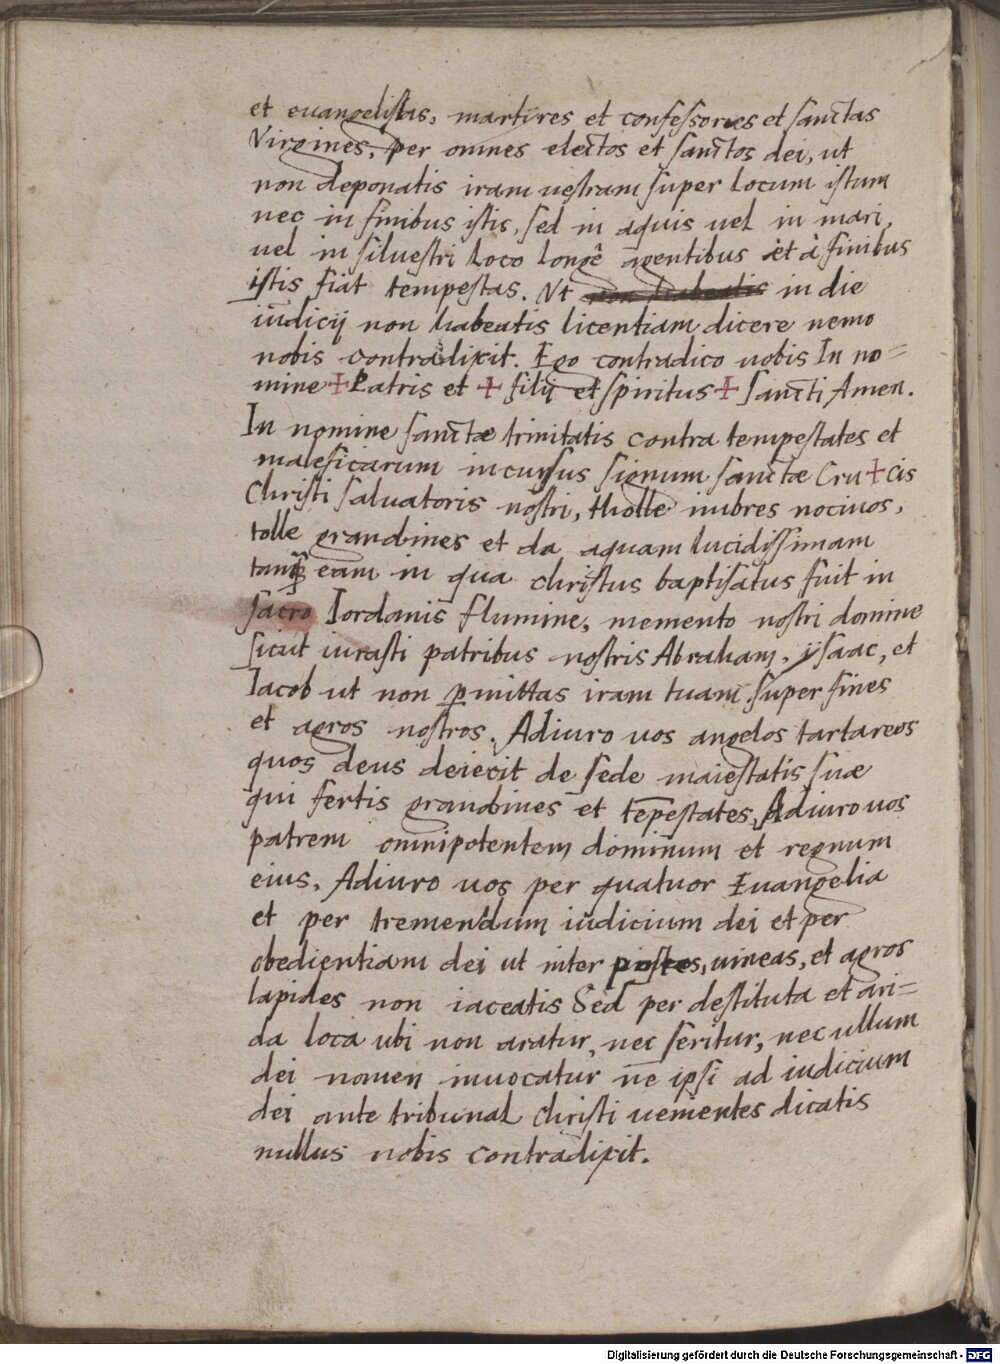 et euangelistas, martires et confessores et sanctas
Virgines, per omnes electos et sanctos dei, ut
non deponatis iram uestram super locum istum
nec in finibus istis, sed in aquis uel in mari,
uel in siluestri loco longè agentibus et à finibus
istis fiat tempestas. Vt in die
iudicij non habeatis licentiam dicere nemo
nobis contradixit. Ego contradico uobis In no=
mine + Patris et + filij et spiritus + sancti Amen.
In nomine sanctæ trinitatis contra tempestates et
maleficarum incursus signum sanctæ Cru + cis
Christi saluatoris nostri, tholle imbres nociuos,
tolle grandines et da aquam lucidissimam
tanq̃ eam in qua christus baptisatus fuit in
sacro Iordanis flumine, memento nostri domine
sicut iurasti patribus nostris Abraham, ysaac, et
Iacob ut non pmittas iram tuam super fines
et agros nostros. Adiuro uos angelos tartareos
quos deus deiecit de sede maiestatis suæ
qui fertis grandines et tempestates, Adiuro uos
patrem omnipotentem dominum et regnum
eius, Adiuro uos per quatuor Euangelia
et per tremendum iudicium dei et per
obedientiam dei ut inter uineas, et agros
lapides non iaceatis Sed per destituta et ari=
da loca ubi non aratur, nec seritur, nec ullum
dei nomen inuocatur ne ipsi ad iudicium
dei ante tribunal christi uenientes dicatis
nullus nobis contradixit.
Digitalisierung gefördert durch die Deutsche Forschungsgemeinschaft - DFG